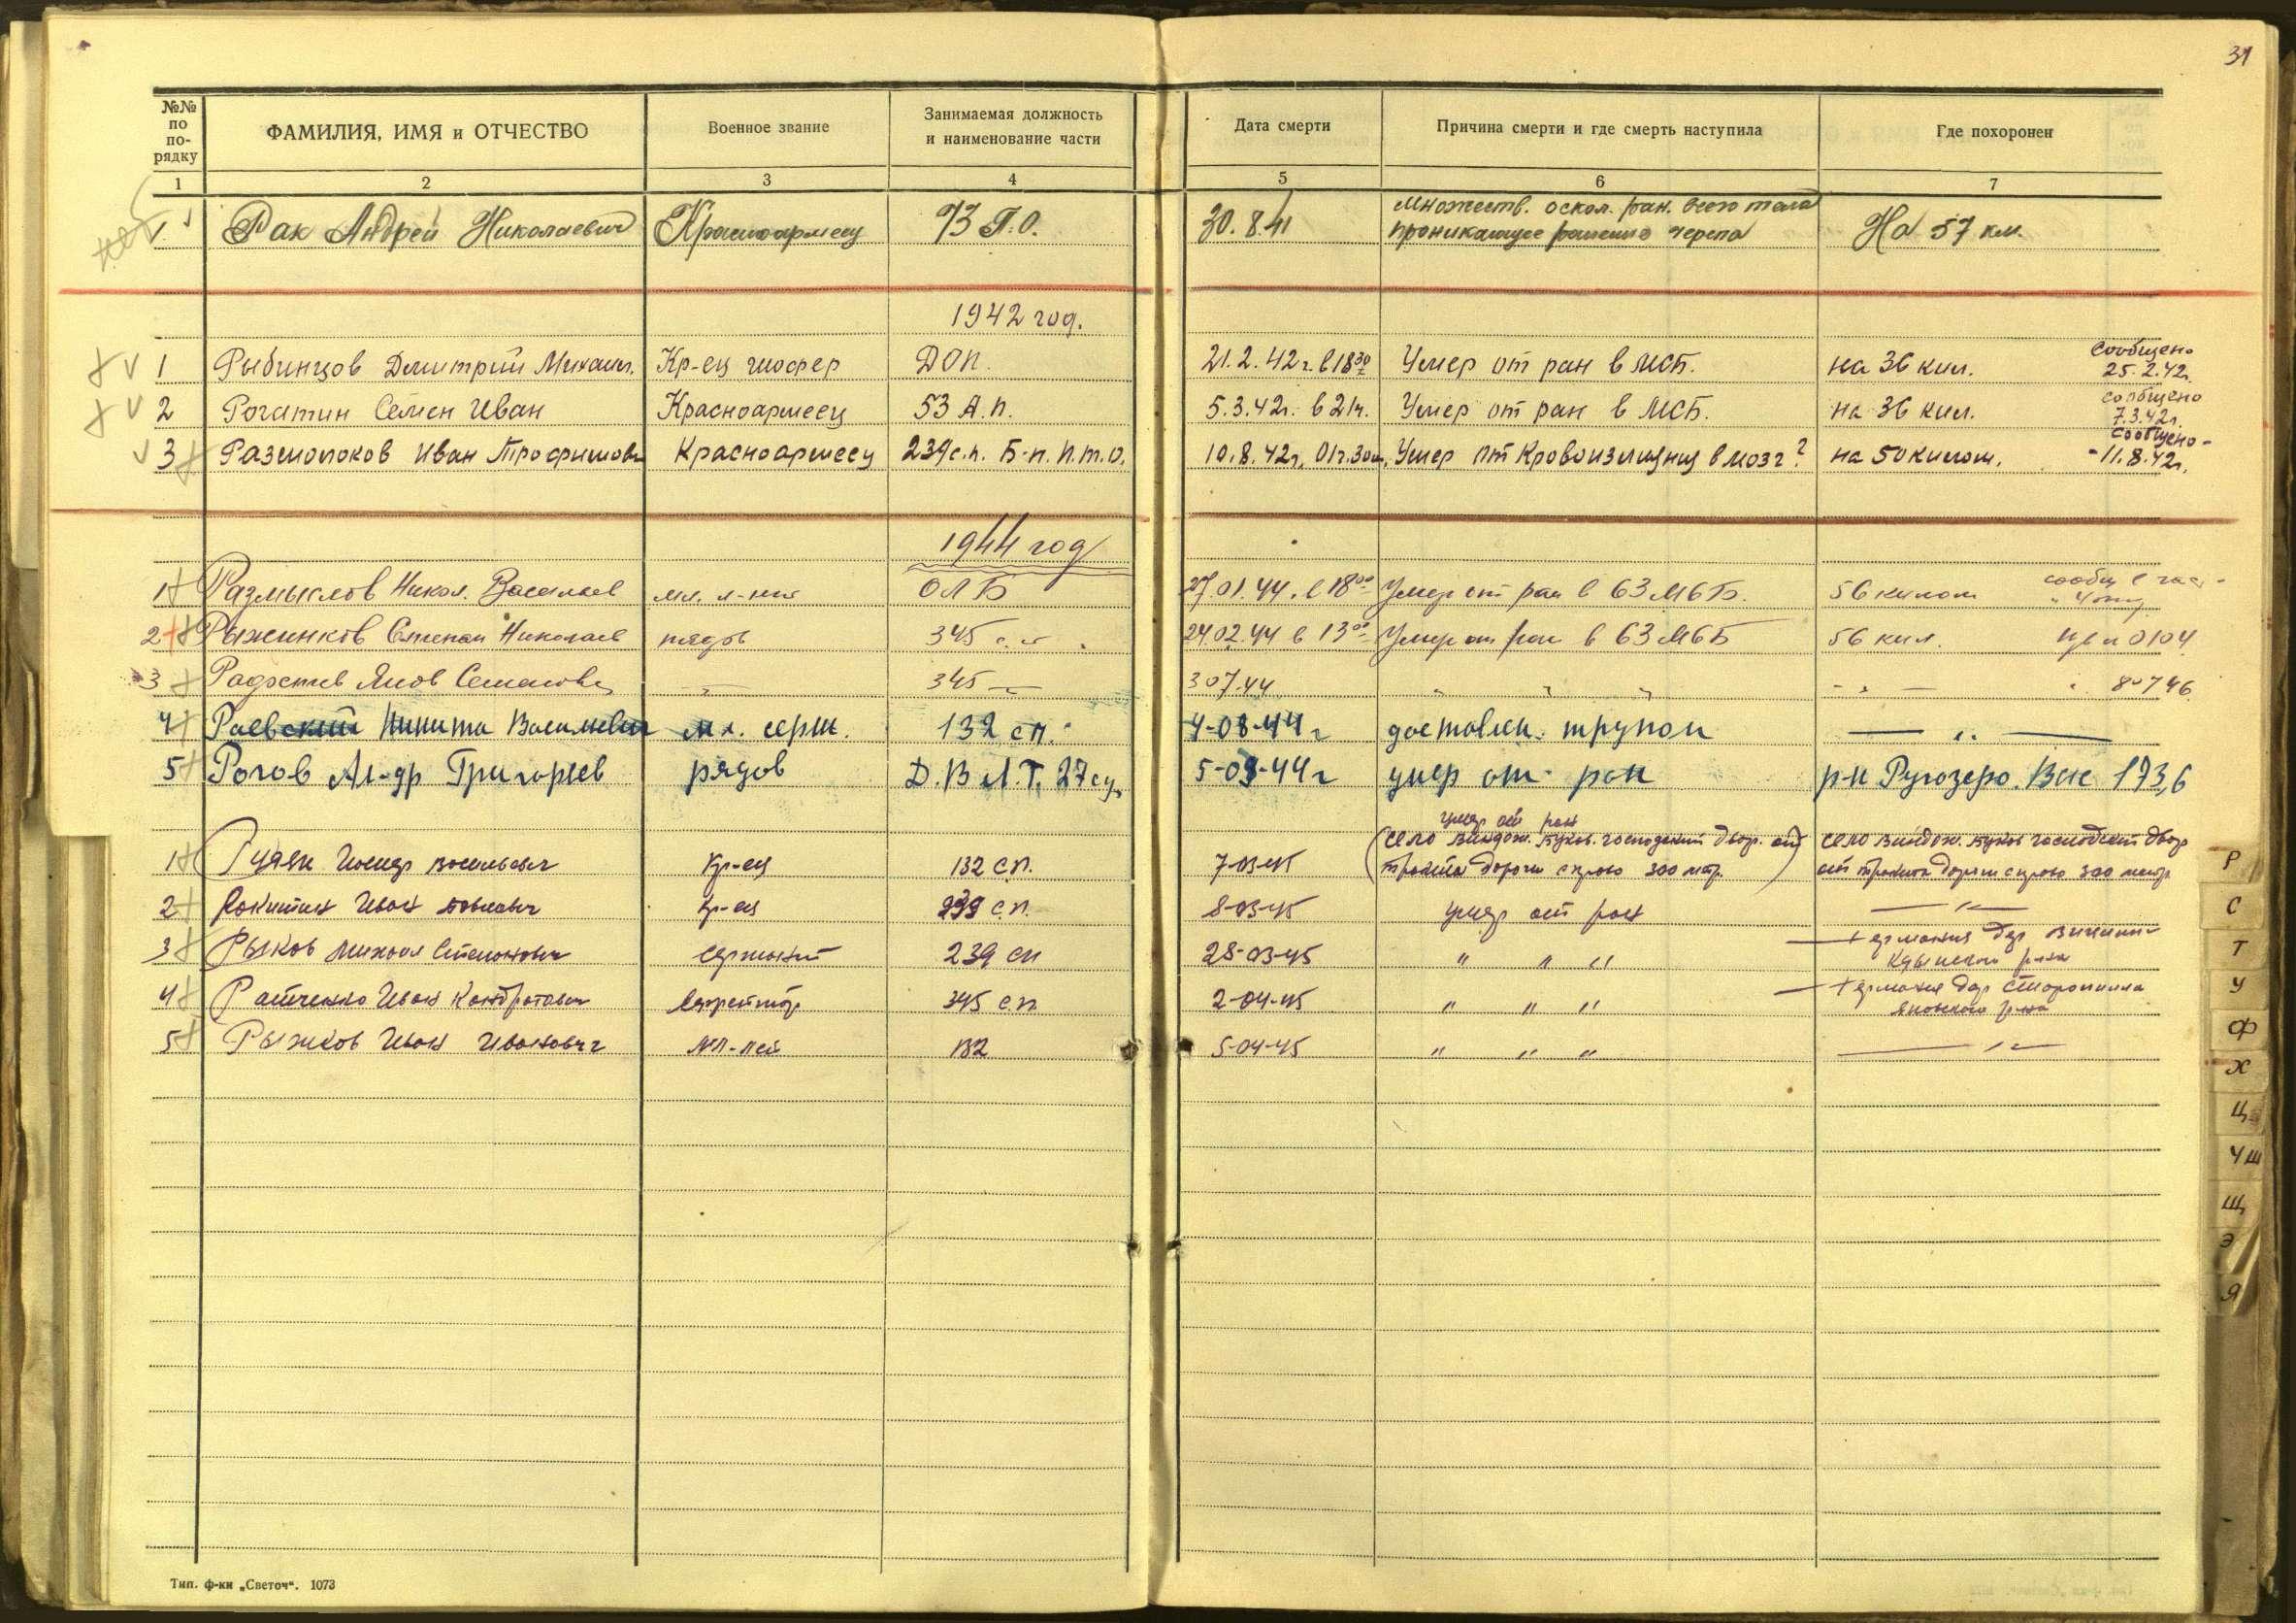 31
№№ по по- рядку
ФАМИЛИЯ, ИМЯ и ОТЧЕСТВО
Военное звание
Занимаемая должность и наименование части
Дата смерти
Причина смерти и где смерть наступила
Где похоронен
1 2 3 4 5 6 7
1 Рак Андрей Николаевич Красноармеец 73 П.О. 30.8.41 множеств. оскол. ран. всего тела
проникающее ранение черепа На 57 км.
1942 год.
1 Рыбинцов Дмитрий Михаил. Кр-ец шофер ДОП. 21.2.42г. в 18 30 Умер от ран в МСБ. на 36 кил. Сообщено
25.2.42г.
2 Рогатин Семен Иван Красноармеец 53 А.п. 5.3.42г. в 21ч. Умер от ран в МСБ. на 36 кил. сообщено
7.3.42г.
3 Иван Трофимови Красноармеец 239 с.п. Б-н. П.т.о. 10.8.42г, 01ч.30м, Умер от Кровоизлияния в мозг? на 50 килом. Сообщено-
-11.8.42г.
1944 год
1 Размыслов Никол. Васильев мл. л-нт ОЛБ 27.01.44. в 18 00 Умер от ран в 63 МБ. 56 килом
2 Рыжинков Степан Николаев рядов 345 с.п. 24.02.44 в 13 00 Умер от ран в 63 МСБ 56 кил. 0104
3 Яков Семенович 345 — 3 07.44 " " " 80746
4 Раевский Никита Васильевич мл. серж. 132 сп. 4-08-44 г доставлен. трупом — " —
5 Рогов Ал-др Григорьев рядов Д.В.Л.Т. 27 5-09-44 г умер от ран р-н Ругозеро. Выс 173,6
умер от ран
1 Васильевич Кр-ец 132 с.п. 7-03-45 (село господский двор. от
тракта дороги справо 300 метр.) село господский двор
от тракта дороги справо 300 метр
2 Рокитин Иван Павлович Кр-ец 239 с.п. 8-03-45 умер от ран — " —
3 Рыков Михаил Степанович Сержант 239 сп 28-03-45 " " " Германия дер
р-на
4 Ратченко Иван Кондратович Ефрейтор 345 с.п 2-04-45 " " " Германия дер
р-на
5 Рыжков Иван Иванович мл-лей 132 5-04-45 " " " — " —
Р
С
Т
У
Ф
Х
Ц
Ч Ш
Щ
Э
Я
Тип. ф-ки „Светоч“. 1073